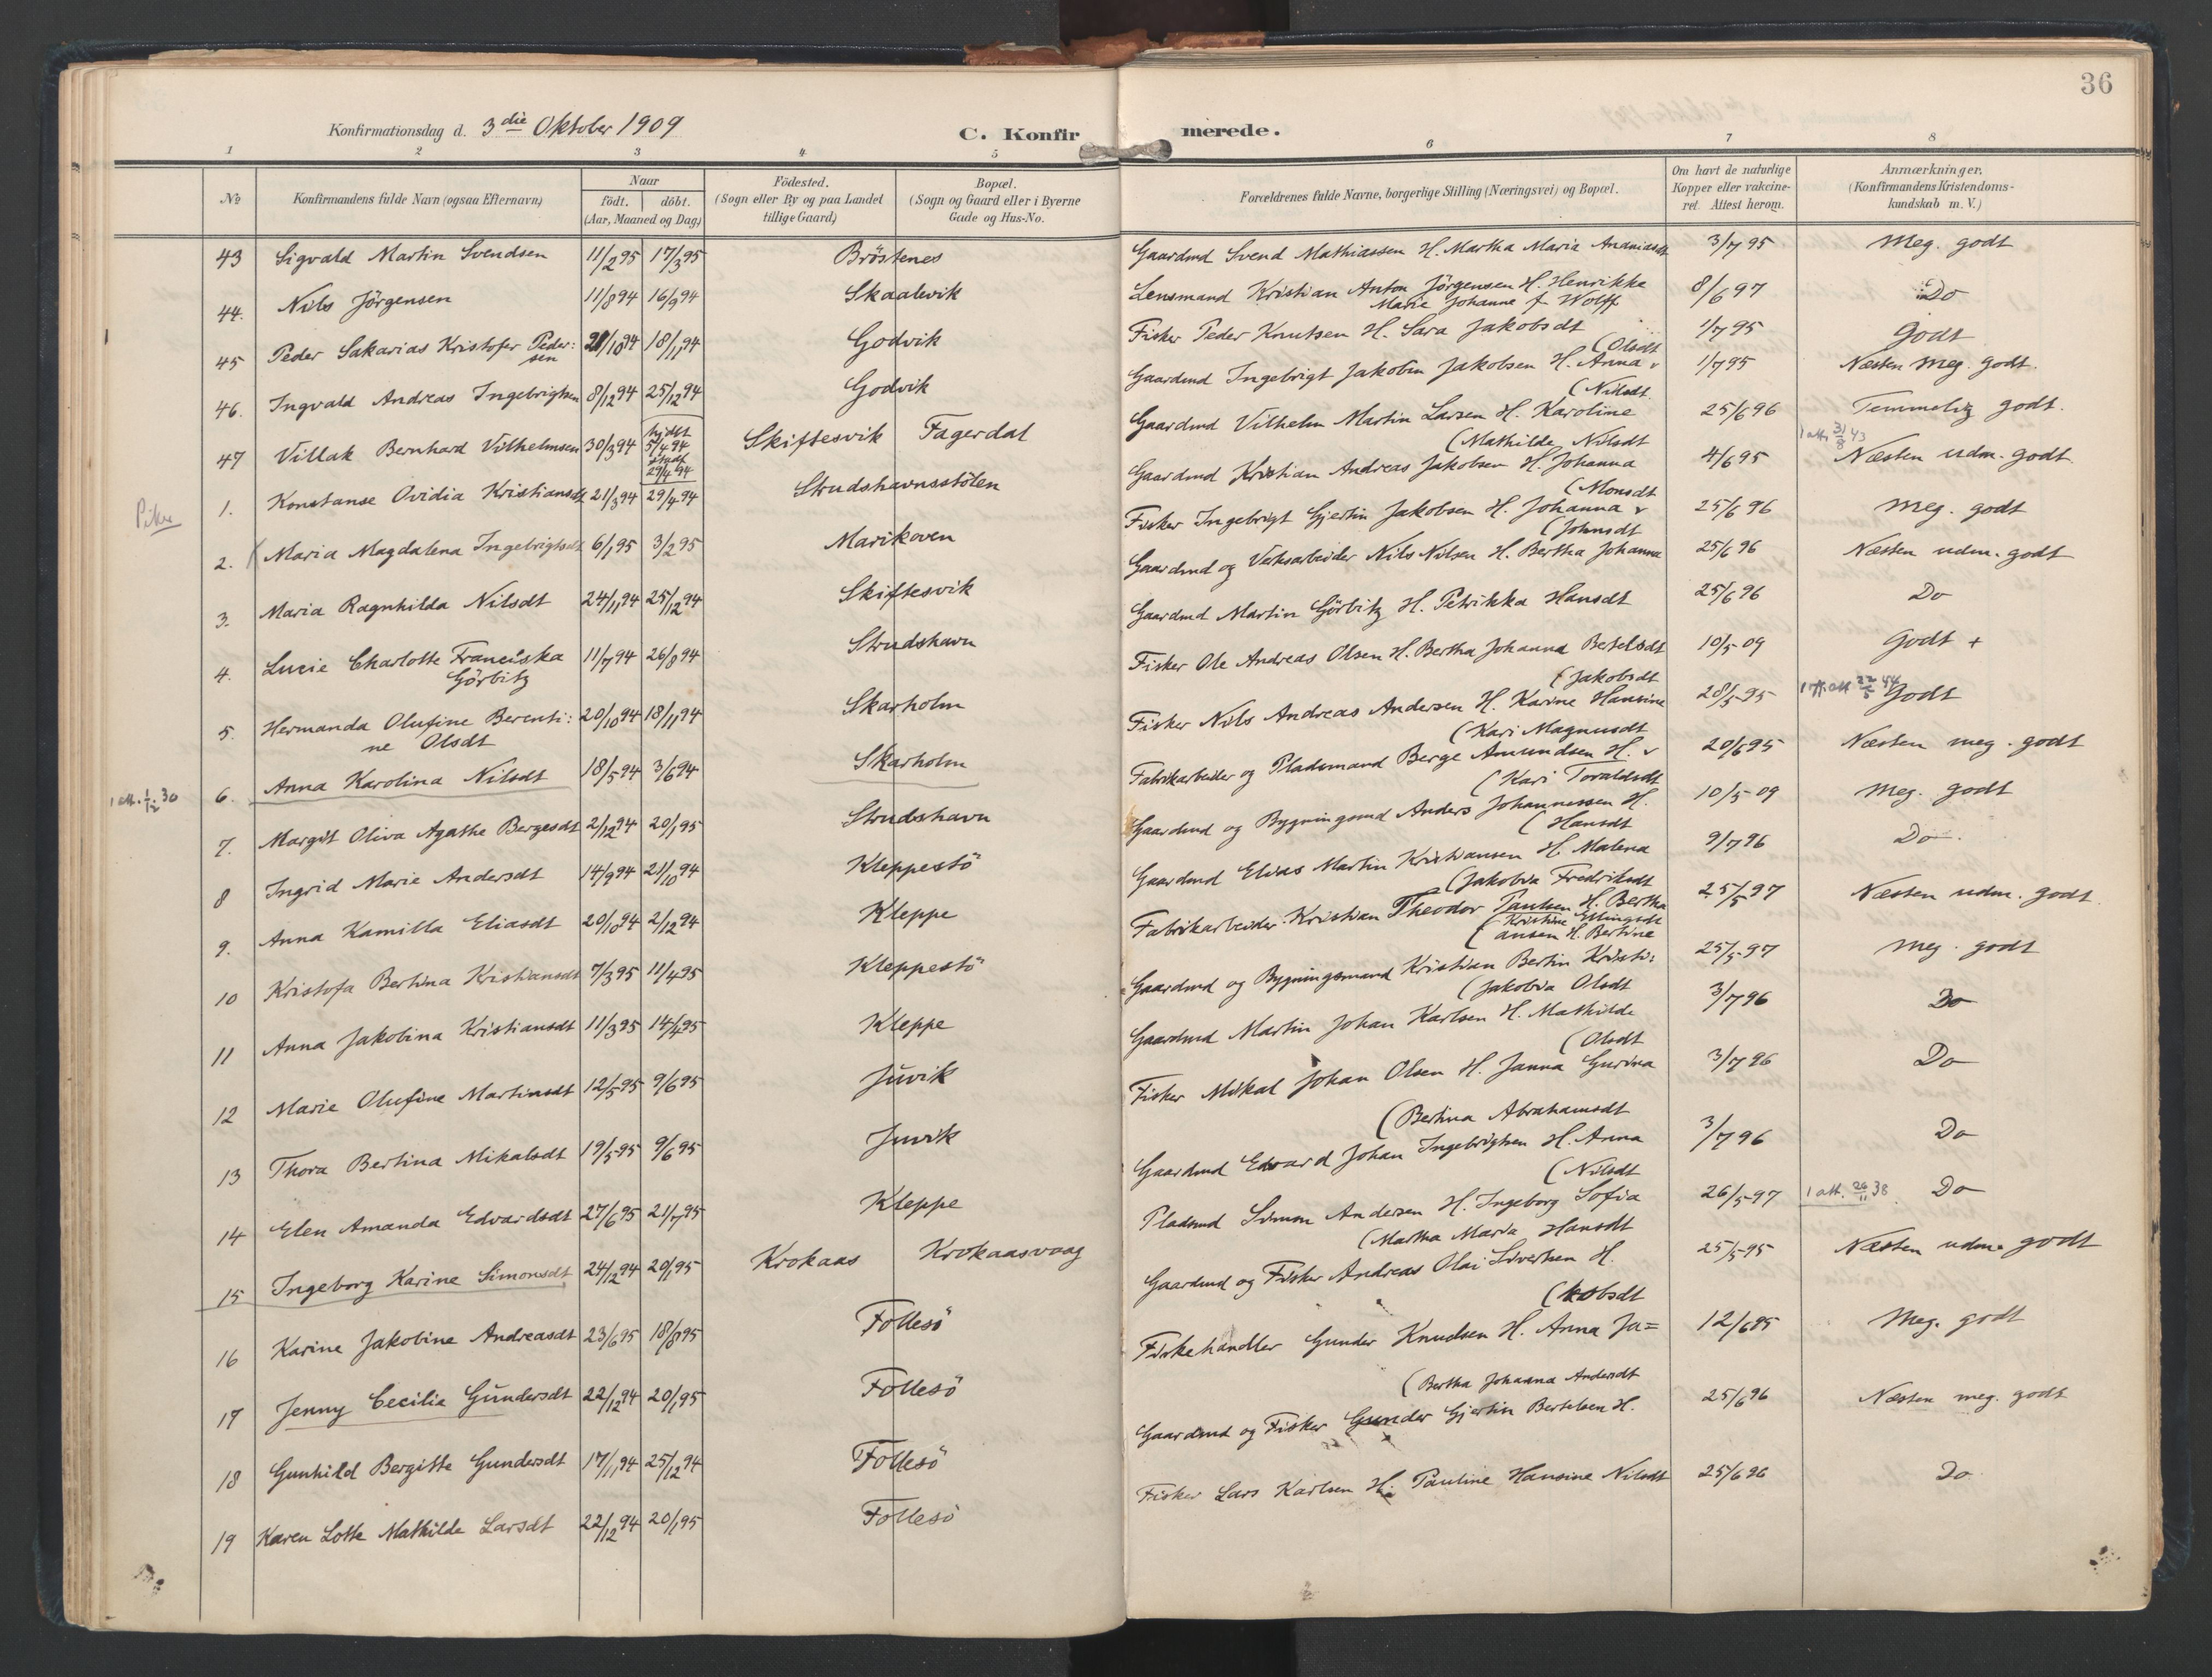 36
Konfirmationsdag d. 3die Oktober 1909
C. Konfirmerede.
1 2 3 4 5 6 7 8
No
Konfirmandens fulde Navn (ogsaa Efternavn)
Naar
födt. döbt.
(Aar, Maaned og Dag)
Födested.
(Sogn eller By og paa Landet
tillige Gaard)
Bopæl.
(Sogn og Gaard eller i Byerne
Gade og Hus-No.
Forældrenes fulde Navne, borgerlige Stilling (Næringsvei) og Bopæl.
Om havt de naturlige
Kopper eller vakcine-
ret. Attest herom.
Anmærkninger.
(Konfirmandens Kristendoms-
kundskab m. V.)
43 Sigvald Martin Svendsen 11/2 95 17/3 95 Bröstenes Gaardmd Svend Mathiassen H. Martha Maria Ananiasdt 3/7 95 Meg. godt
44. Nils Jörgensen 11/8 94 16/9 94 Skaalevik Lensmand Kristian Anton Jörgensen H. Henrikke
Marie Johanne f Wolff 8/6 97 Do
45 Peder Sakarias Kristofer Peder:
sen 21/10 94 18/11 94 Godvik Fisker Peder Knutsen H. Sara Jakobsdt 1/7 95 Godt
46. Ingvald Andreas Ingebrigtsen 8/12 94 25/12 94 Godvik Gaardmd Ingebrigt Jakobin Jakobsen H. Anna
(Olsdt 1/7 95 Næsten meg. godt
47 Villak Bernhard Vilhelmsen 30/3 94 hjdbt
5/4 94
stadf
29/4 94 Skiftesvik Fagerdal Gaardmd Vilhelm Martin Larsen H. Karoline
(Nilsdt 25/6 96 Temmelig godt.
Piker
1. Konstanse Ovidia Kristiansdt 21/3 94 29/4 94 Strudshavnsstölen Gaardmd Kristian Andreas Jakobsen H. Johanna
(Mathilde Nilsdt 4/6 95 1 att. 31/8 43 Næsten udm. godt
2. Maria Magdalena Ingebrigtsdt 6/1 95 3/2 95 Marikoven Fisker Ingebrigt Gjertin Jakobsen H. Johanna
(Monsdt 25/6 96 Meg. godt
3. Maria Ragnhilda Nilsdt 24/11 94 25/12 94 Skiftesvik Gaardmd og Verksarbeider Nils Nilsen H. Bertha Johanna
(Johnsdt 25/6 96 Næsten udm. godt
4. Lucie Charlotte Franciska
Görbitz 11/7 94 26/8 94 Strudshavn Gaardmd Martin Görbitz H. Petrikka Hansdt 25/6 96 Do
5. Hermanda Olufine Berenti:
ne Olsdt 20/10 94 18/11 94 Skarholm Fisker Ole Andreas Olsen H. Bertha Johanna Bertelsdt 10/5 09 Godt +
1 att. 1/12 30 6. Anna Karolina Nilsdt 18/5 94 3/6 94 Skarholm Fisker Nils Andreas Andersen H. Karine Hansine
(Jakobsdt 28/5 95 22/5 44 Godt
7. Margit Oliva Agathe Bergesdt 2/12 94 20/1 95 Strudshavn Fabrikarbeider og Pladsmand Berge Amundsen H.
(Kari Magnusdt 20/6 95 Næsten meg. godt
8 Ingrid Marie Andersdt 14/9 94 21/10 94 Kleppestö Gaardmd og Bygningsmd Anders Johannessen H.
(Kari Toraldsdt 10/5 09 Meg. godt
9. Anna Kamilla Eliasdt 20/10 94 2/12 94 Kleppe Gaardmd Elias Martin Kristiansen H. Malena
(Hansdt 9/7 96 Do
10 Kristofa Bertina Kristiansdt 7/3 95 11/4 95 Kleppestö Fabrikarbeider Kristian Theodor Paulsen H. Bertha
(Jakobia Fredriksdt 25/5 97 Næsten udm. godt
11 Anna Jakobina Kristiansdt 11/3 95 14/4 95 Kleppe Gaardmd og Bygningsmand Kristian Bertin Kristi:
(Kristine Ellingsdt
(ansen H. Bertine 25/5 97 Meg. godt
12 Marie Olufine Martinsdt 12/5 95 9/6 95 Juvik Gaardmd Martin Johan Karlsen H. Mathilde
(Jakobia Olsdt 3/7 96 Do
13 Thora Bertina Mikalsdt 19/5 95 9/6 95 Juvik Fisker Mikal Johan Olsen H. Janna Gurina
(Olsdt 3/7 96 Do
14 Elen Amanda Edvardsdt 27/6 95 21/7 95 Kleppe Gaardmd Edvard Johan Ingebrigtsen H. Anna
(Bertina Abrahamsdt 3/7 96 Do
15 Ingeborg Karine Simonsdt 24/12 94 20/1 95 Krokaas Krokaasvaag Pladsmd Simon Andersen H. Ingeborg Sofia
(Nilsdt 26/5 97 1 att. 26/11 38 Do
16 Karine Jakobine Andreasdt 23/6 95 18/8 95 Follesö Gaardmd og Fisker Andreas Olai Sivertsen H.
(Martha Maria Hansdt 25/5 95 Næsten udm. godt
17 Jenny Cecilie Gundersdt 22/12 94 20/1 95 Follesö Fiskehandler Gunder Knudsen H. Anna Ja=
(kobsdt 12/6 95 Meg. godt
18 Gunhild Bergitte Gundersdt 17/11 94 25/12 94 Follesö Gaardmd og Fisker Gunder Gjertin Bertelsen H.
(Bertha Johanna Andersdt 25/6 96 Næsten meg. godt
19 Karen Lotte Mathilde Larsdt 22/12 94 20/1 95 Follesö Fisker Lars Karlsen H. Pauline Hansine Nilsdt 25/6 96 Do